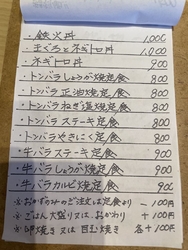 ・鉄火丼 1,000
・まぐろとネギトロ丼 1,000
・ネギトロ丼 900
・トンバラしょうが焼定食 800
・トンバラ正油焼定食 800
・トンバラねぎ塩焼定食 800
・トンバラステーキ定食 800
・トンバラやきにく定食 800
・牛バラステーキ定食 900
・牛バラしょうが焼定食 900
・牛バラカルビ焼定食 900
※おかずのみのご注文は定食より －100円
※ごはん大盛り又は、おかわり ＋100円
※卵焼き又は目玉焼き 各＋100円